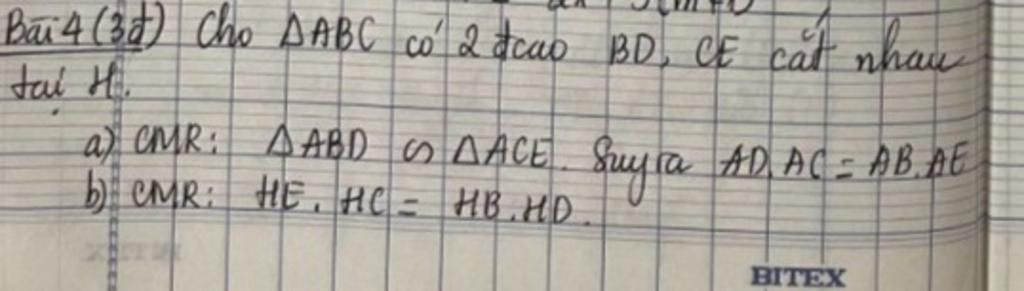 Bài 4 (3đ) Cho ΔABC có 2 đcao BD, CE cắt nhau
tại H.
a) CMR: ΔABD ∽ ΔACE. Suy ra AD.AC = AB.AE
b) CMR: HE.HC = HB.HD.
BITEX